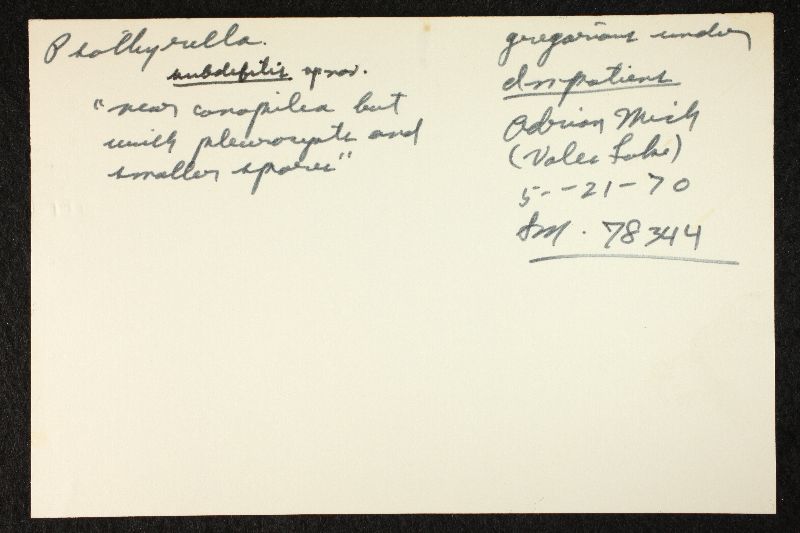 Psathyrella.
subdefilis sp nov.
"near conopilea but
with pleurocysts and
smaller spores"
gregarious under
Impatiens
Adrian Mich
(Voles Lake)
5--21-70
SM. 78344